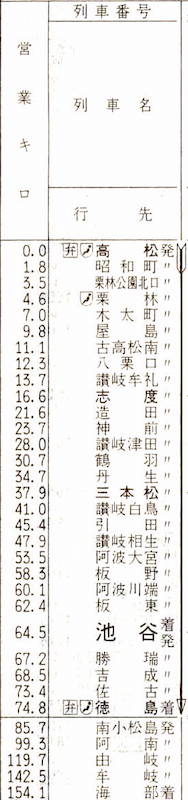 列車番号
営業キロ
列車名
行先
0.0 弁 高松発
1.8 昭和町〃
3.5 栗林公園北口〃
4.6 栗林〃
7.0 木太町〃
9.8 屋島〃
11.1 古高松南〃
12.3 八栗口〃
13.7 讃岐牟礼〃
16.6 志度〃
21.6 造田〃
23.7 神前〃
28.0 讃岐津田〃
30.7 鶴羽〃
34.7 丹生〃
37.9 三本松〃
41.0 讃岐白鳥〃
45.4 引田〃
47.9 讃岐相生〃
53.5 阿波大宮〃
58.3 板野〃
60.1 阿波川端〃
62.4 板東〃
64.5 池谷着発
67.2 勝瑞〃
68.5 吉成〃
73.4 佐古〃
74.8 弁 徳島着
85.7 南小松島発
99.3 阿南〃
119.7 由岐〃
142.5 牟岐〃
154.1 海部着